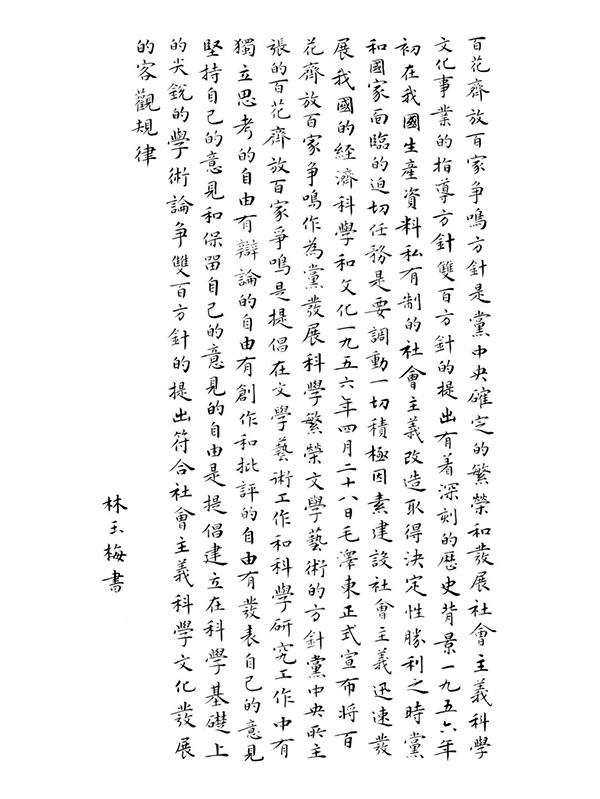 百花齊放百家爭鳴方針是黨中央確定的繁榮和發展社會主義科學
文化事業的指導方針雙百方針的提出有着深刻的歷史背景一九五六年
初在我國生產資料私有制的社會主義改造取得決定性勝利之時黨
和國家面臨的迫切任務是要調動一切積極因素建設社會主義迅速發
展我國的經濟科學和文化一九五六年四月二十八日毛澤東正式宣布將百
花齊放百家爭鳴作為黨發展科學繁榮文學藝術的方針黨中央所主
張的百花齊放百家爭鳴是提倡在文學藝術工作和科學研究工作中有
獨立思考的自由有辯論的自由有創作和批評的自由有發表自己的意見
堅持自己的意見和保留自己的意見的自由是提倡建立在科學基礎上
的尖銳的學術論爭雙百方針的提出符合社會主義科學文化發展
的客觀規律
林玉梅書